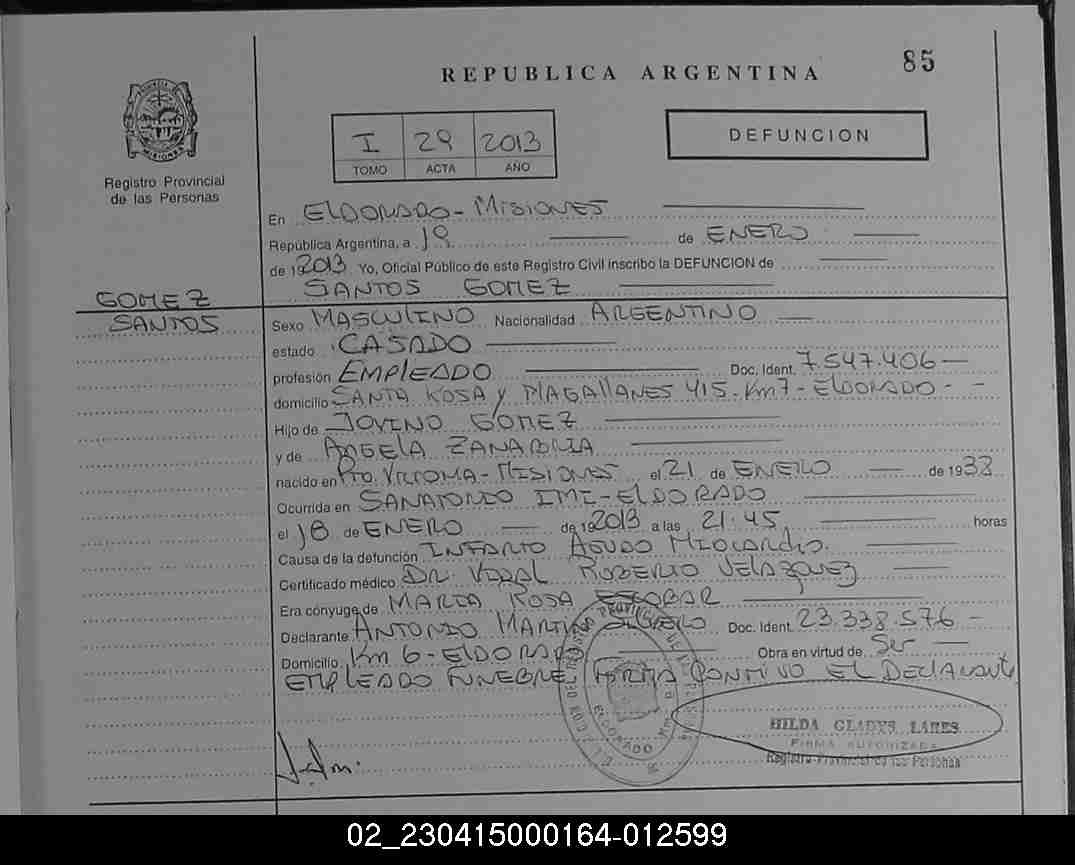 85
REPUBLICA ARGENTINA
I 29 2013
TOMO ACTA AÑO
DEFUNCION
Registro Provincial
de las Personas
En ELDORADO - MISIONES
República Argentina, a 19 de ENERO
de 192013 Yo, Oficial Público de este Registro Civil inscribo la DEFUNCION de
GOMEZ SANTOS GOMEZ
SANTOS Sexo MASCULINO Nacionalidad ARGENTINO
estado CASADO
profesión EMPLEADO Doc. Ident. 7.547.406
domicilio SANTA ROSA y MAGALLANES 415 - Km 7 - ELDORADO -
Hijo de JOVINO GOMEZ
y de ANGELA ZANABRIA
nacido en Pto VICTORIA - MISIONES el 21 de ENERO de 1933
Ocurrida en SANATORIO IMI - ELDORADO
el 18 de ENERO de 192013 a las 21:45 horas
Causa de la defunción INFARTO AGUDO MIOCARDIO.
Certificado médico DR. VIDAL ROBERTO VELAZQUEZ
Era cónyuge de MARIA ROSA ESCOBAR
Declarante ANTONIO MARTIN Doc. Ident. 23.338.576 -
Domicilio Km 6 - ELDORADO Obra en virtud de Ser
EMPLEADO FUNEBRE. FIRMA CONMIGO EL DECLARANTE
HILDA GLADYS LARES
FIRMA AUTORIZADA
Registro Provincial de las Personas
02_230415000164-012599